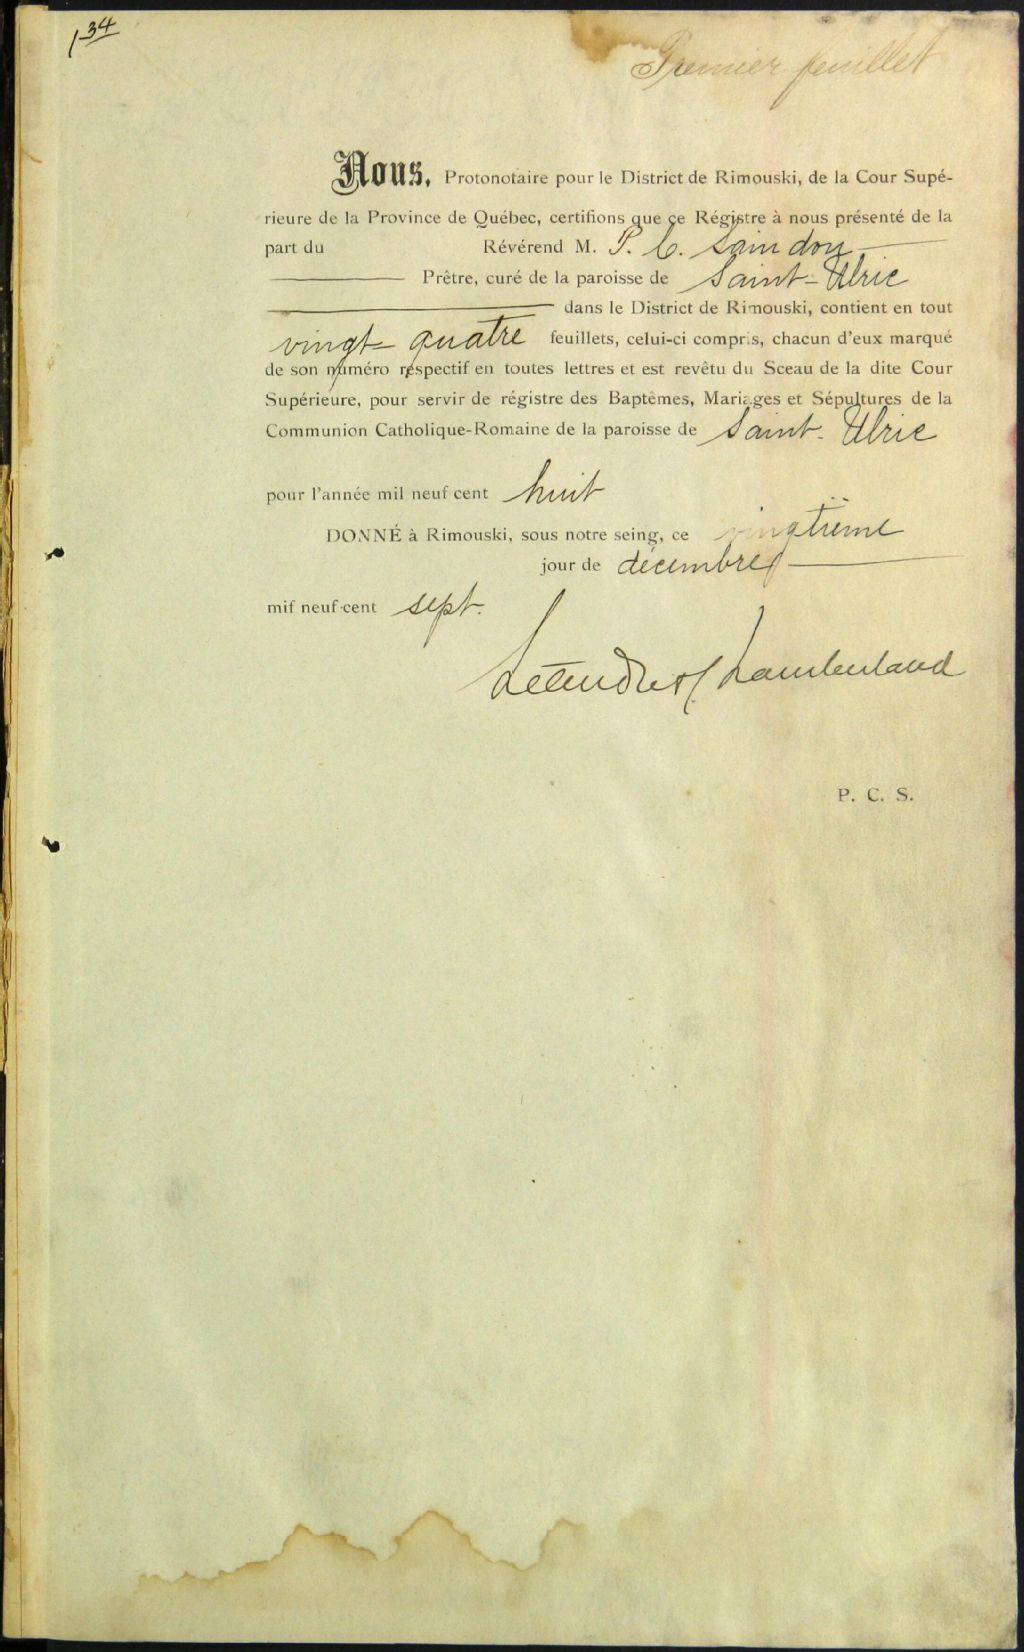 134
Premier feuillet
Nous, Protonotaire pour le District de Rimouski, de la Cour Supé-
rieure de la Province de Québec, certifions que ce Régistre à nous présenté de la
part du Révérend M. P. C. Saindon
Prêtre, curé de la paroisse de Saint-Ulric
dans le District de Rimouski, contient en tout
vingt-quatre feuillets, celui-ci compris, chacun d'eux marqué
de son numéro respectif en toutes lettres et est revêtu du Sceau de la dite Cour
Supérieure, pour servir de régistre des Baptêmes, Mariages et Sépultures de la
Communion Catholique-Romaine de la paroisse de Saint-Ulric
pour l'année mil neuf cent huit
DONNÉ à Rimouski, sous notre seing, ce vingtième
jour de décembre
mil neuf cent sept.
Letendre & Chamberland
P. C. S.